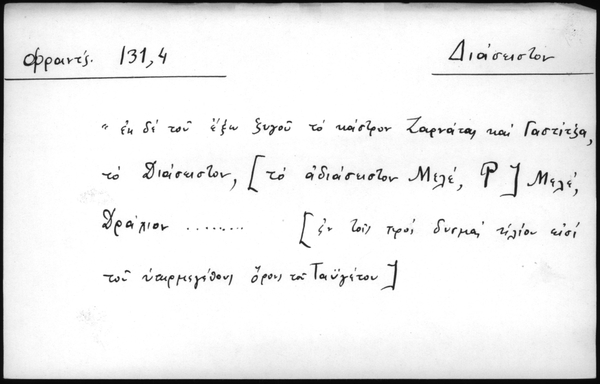 Φραντζ. 131,4
Διάσειστον
" ἐκ δέ τοῦ ἔξω ζυγοῦ τό κάστρον Ζαρνάτας καί Γαστίτζα,
τό Διάσειστον, [ τό ἀδιάσειστον Μελέ, P ] Μελέ,
Δράλιον ........ [ ἐν τοῖς πρός δυσμάς ἡλίου εἰσί
τοῦ ὑπερμεγέθους ὄρους τοῦ Ταϋγέτου ]